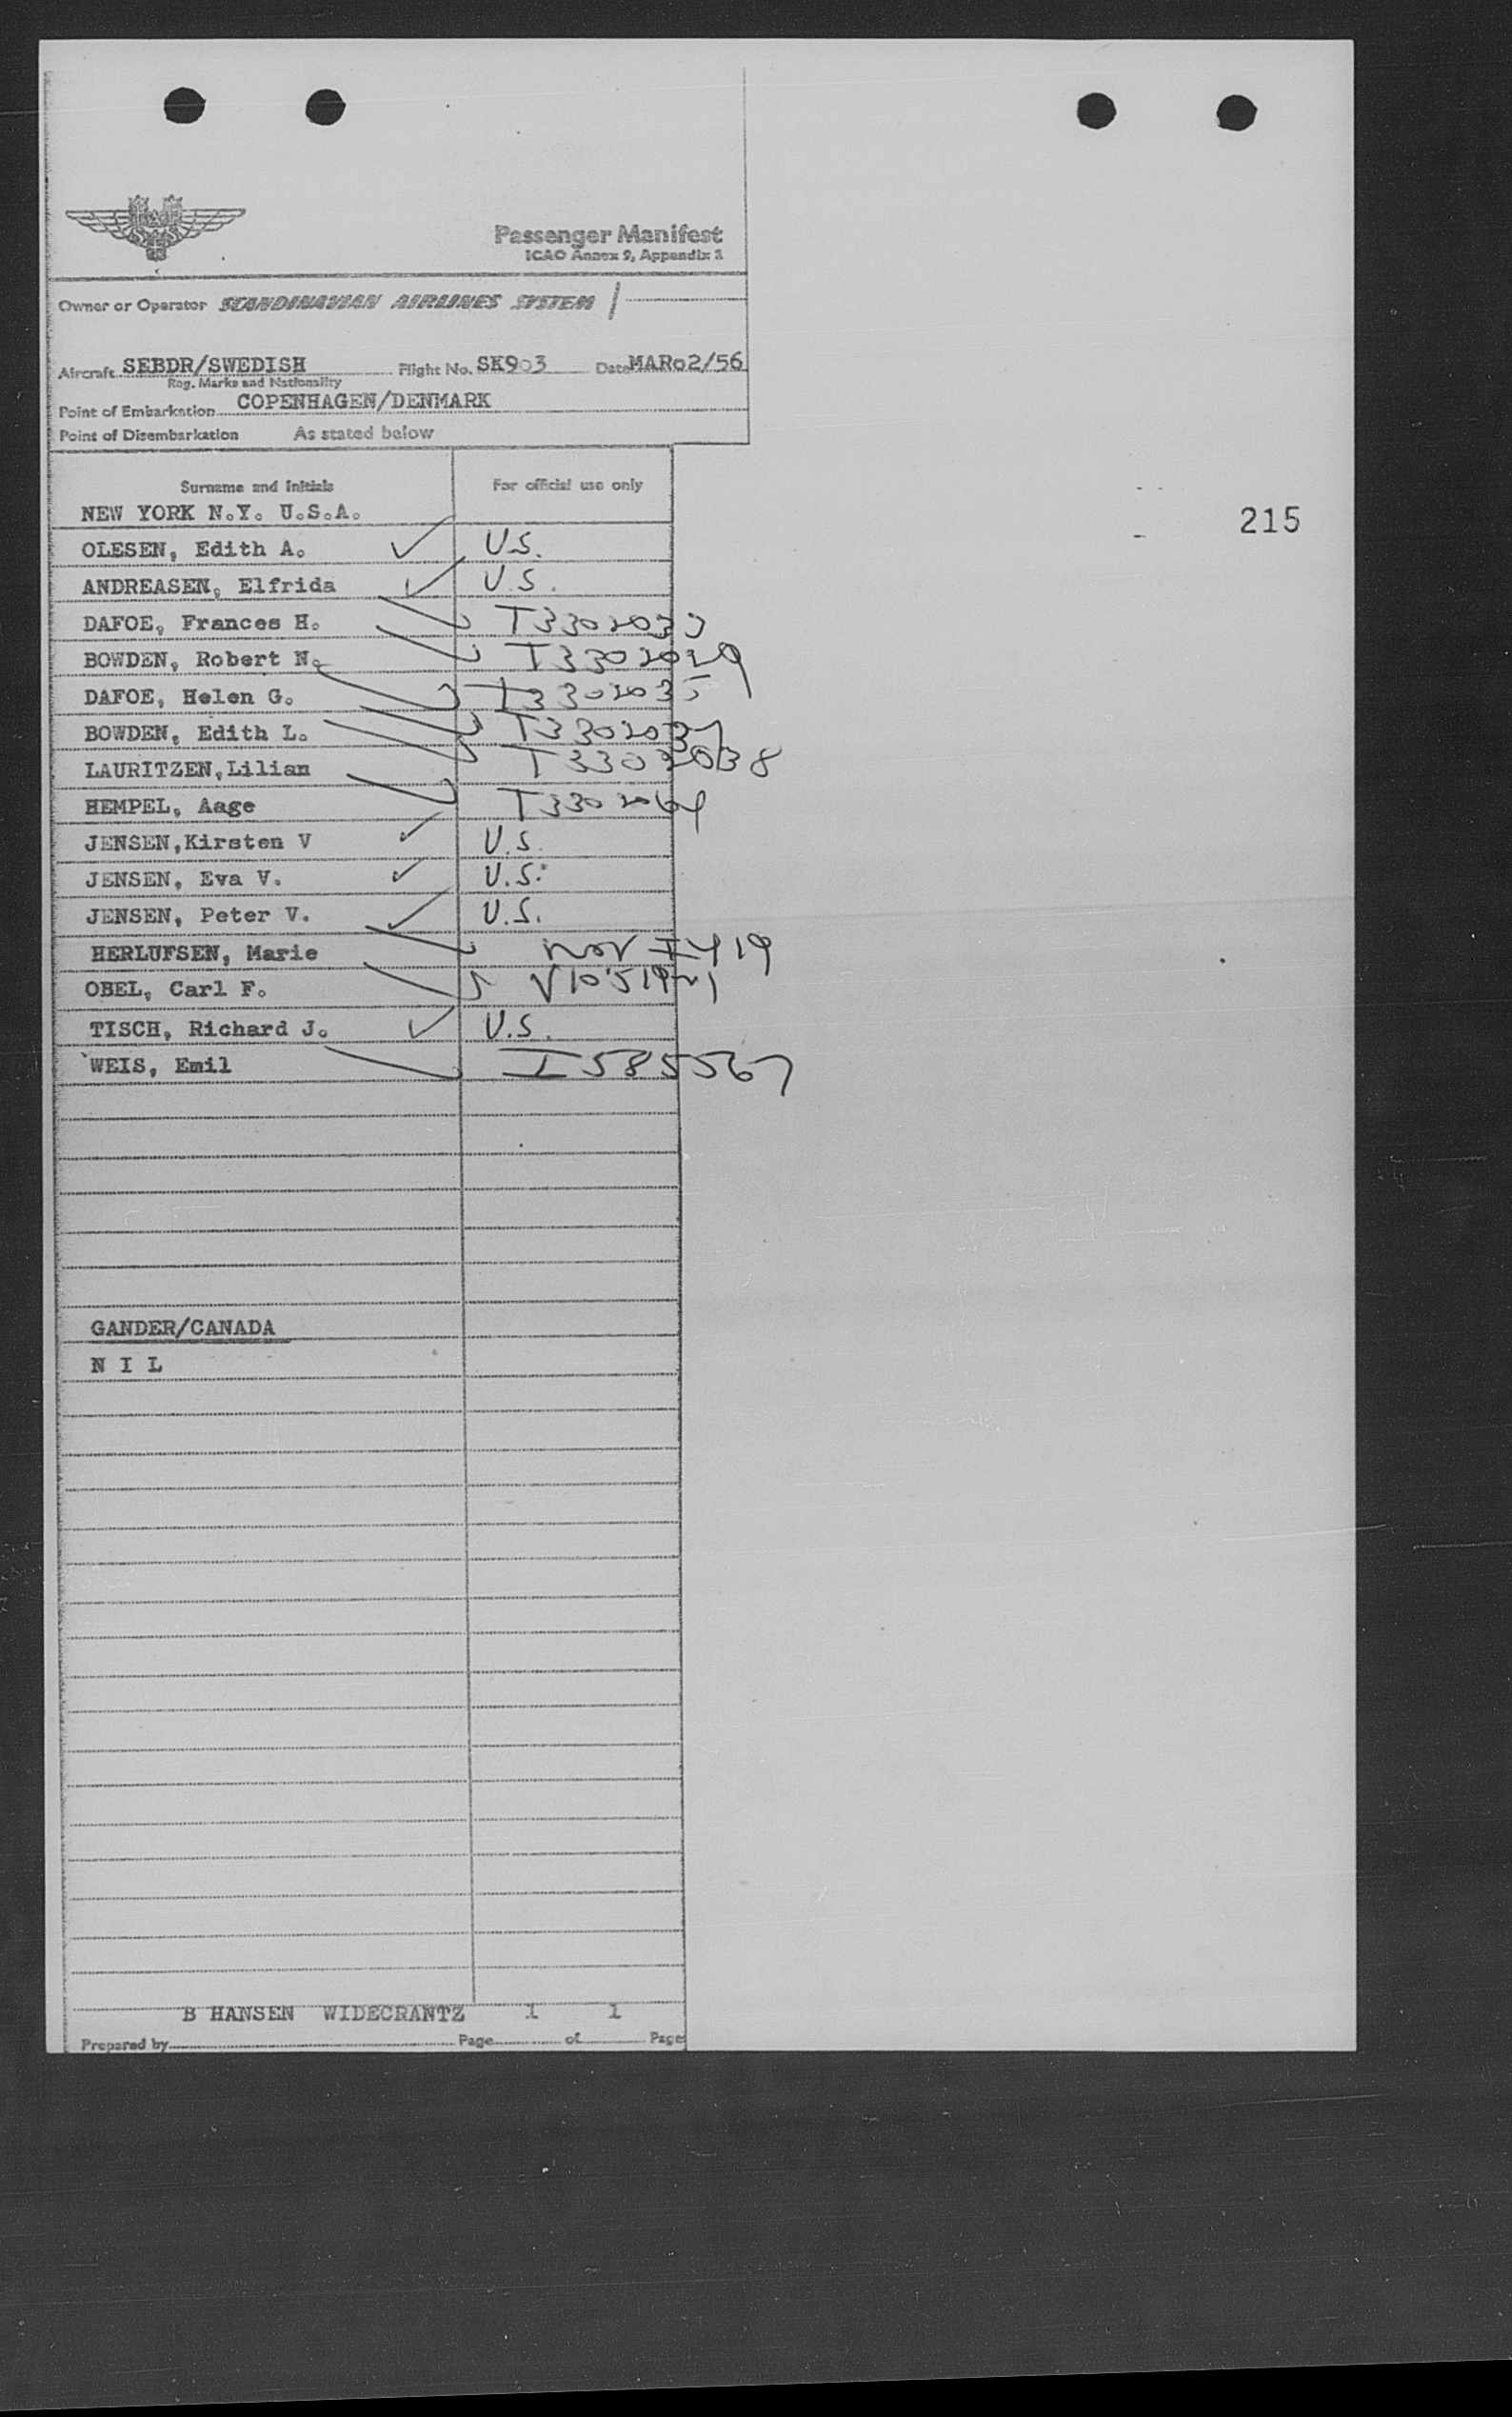 Passenger Manifest
ICAO Annex 9, Appendix 3
Owner or Operator SCANDINAVIAN AIRLINES SYSTEM
Aircraft SEBDR/SWEDISH Flight No. SK903 Date MAR02/56
Reg. Marks and Nationality
Point of Embarkation COPENHAGEN/DENMARK
Point of Disembarkation As stated below
Surname and Initials For official use only
NEW YORK N.Y. U.S.A.
215
OLESEN, Edith A. ✓ U.S.
ANDREASEN, Elfrida ✓ U.S.
DAFOE, Frances H. T3302033
BOWDEN, Robert N. T3302029
DAFOE, Helen G. T3302035
BOWDEN, Edith L. T3302037
LAURITZEN,Lilian T3302038
HEMPEL, Aage T3302064
JENSEN,Kirsten V ✓ U.S.
JENSEN, Eva V. ✓ U.S.
JENSEN, Peter V. ✓ U.S.
HERLUFSEN, Marie
OBEL, Carl F.
TISCH, Richard J. ✓ U.S.
WEIS, Emil I585567
GANDER/CANADA
N I L
B HANSEN WIDECRANTZ 1 1
Prepared by Page of Page